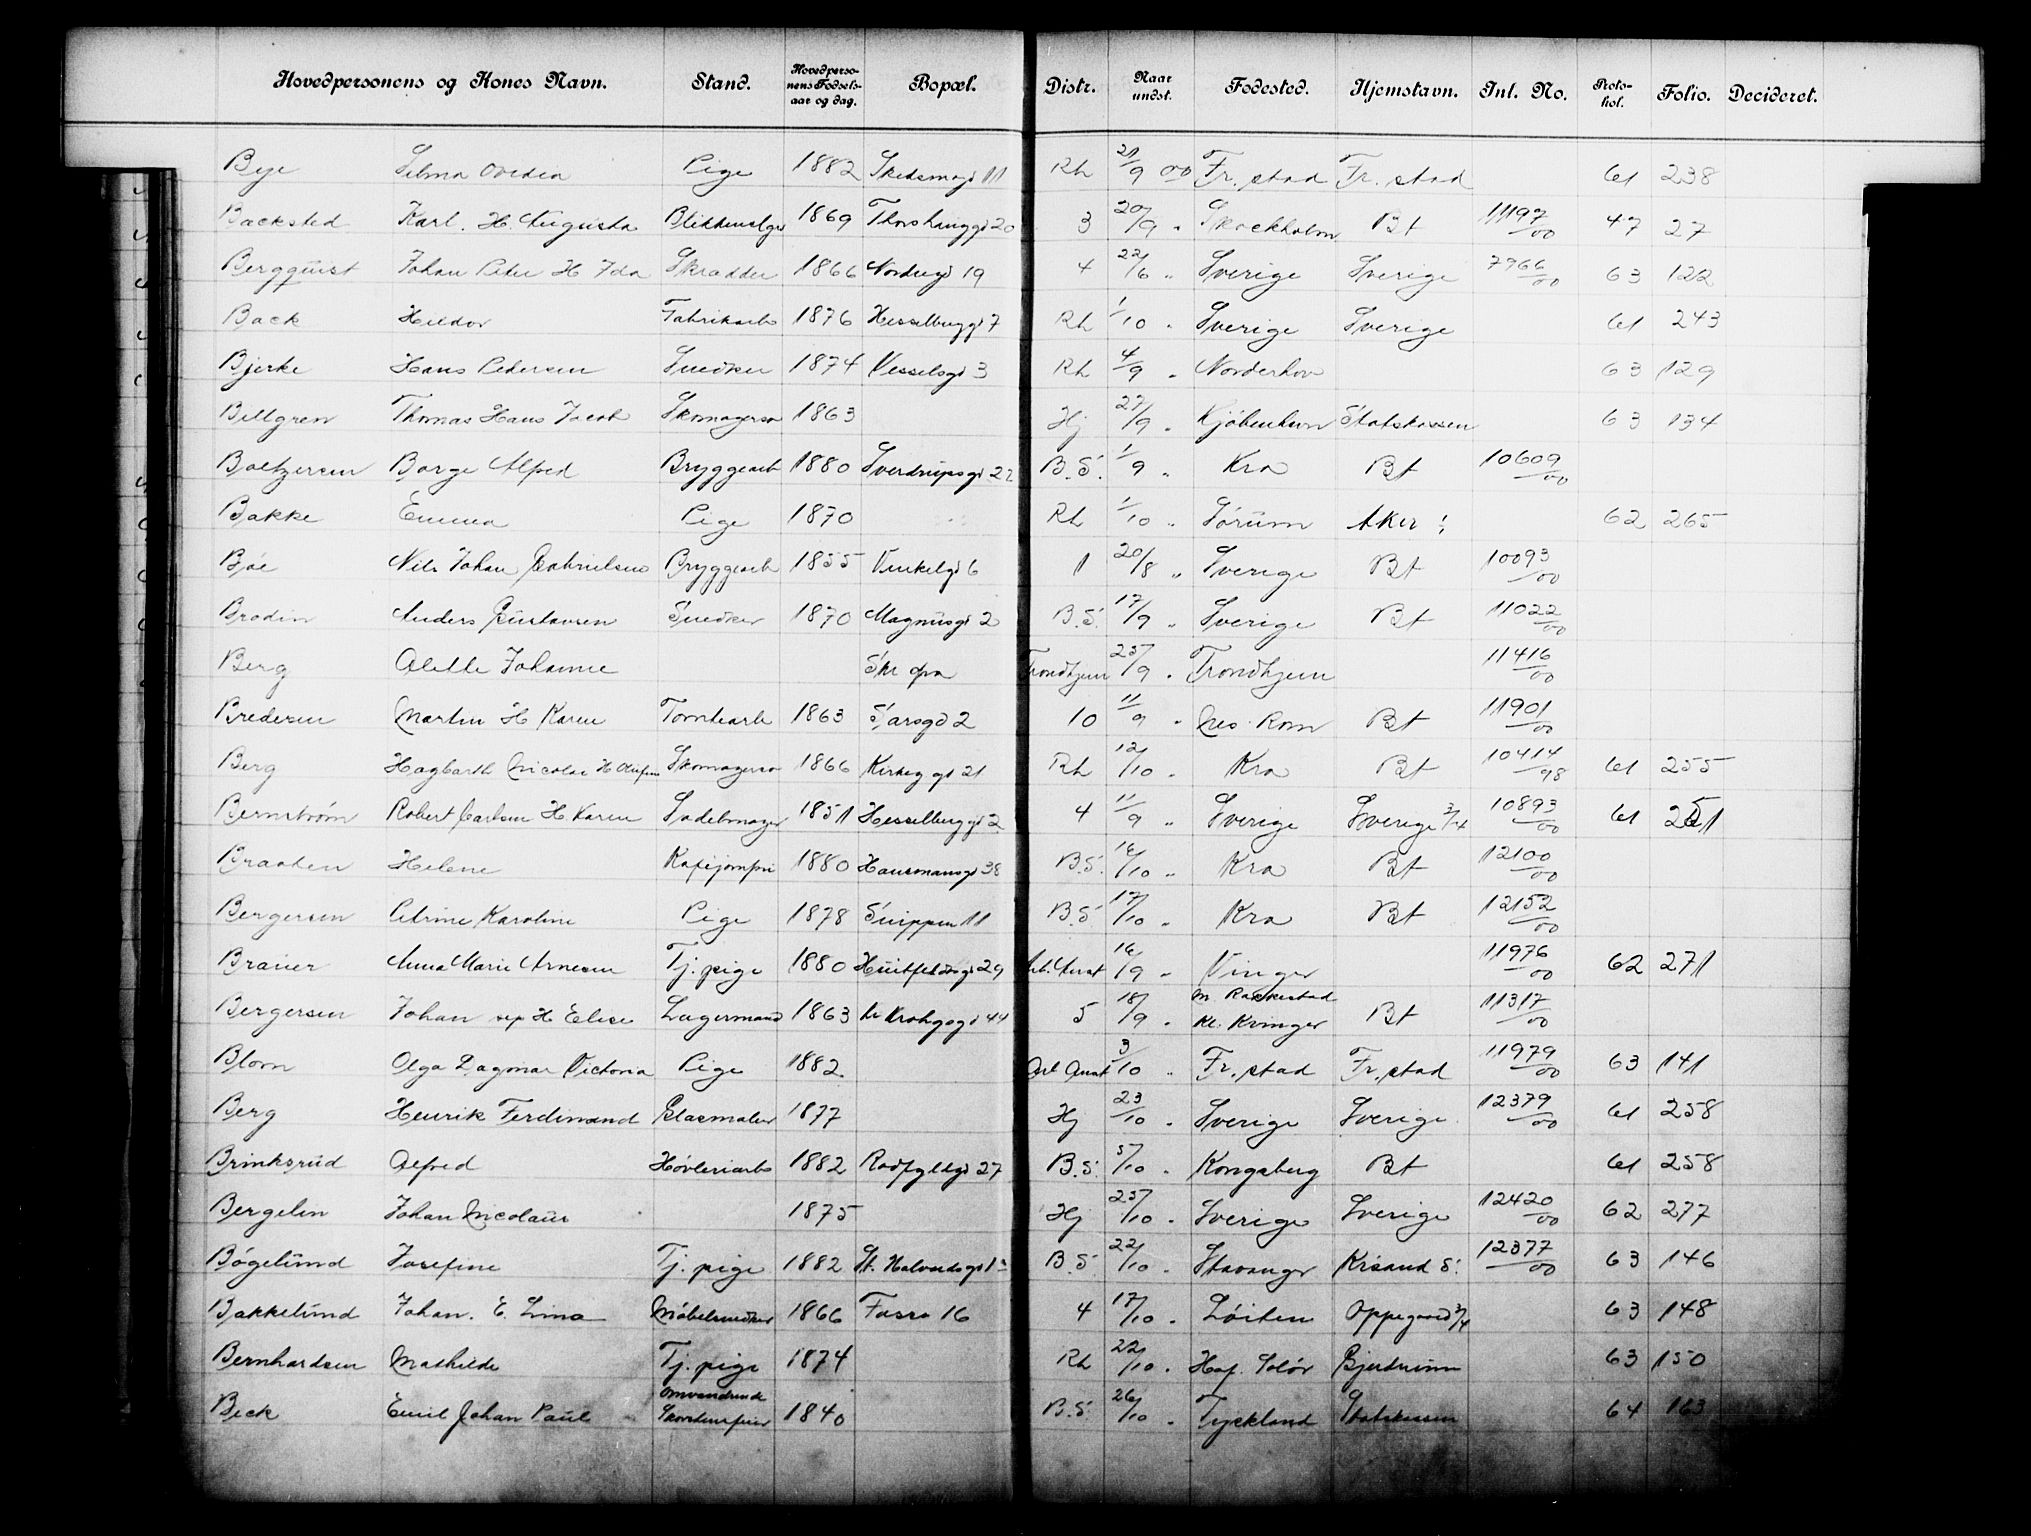 Hovedpersonens og Kones Navn. Stand. Hovedperso-nens Fødsels-aar og dag. Bopæl. Distr. Naar undst. Fødested. Hjemstavn. Inl. No. Proto-kol. Folio. Decideret.
Bye Selma Ovedia Pige 1882 Skedsmogd 11 Rh 21/9 00 Fr. stad Fr. stad 61 238
Backsted Karl. H. Augusta 1869 Thorshauggd 20 3 20/9 " Stockholm Bt 11197/00 47 27
Bergquist Johan Peter H Ida Skrædder 1866 Nordregd 19 4 22/6 " Sverige Sverige 7966/00 63 122
Back Heldor Fabrikarb 1876 Hesselberggd 7 Rh 1/10 " Sverige Sverige 61 243
Bjerke Hans Pedersen Snedker 1874 Vesselsgd 3 Rh 4/9 " Norderhov 63 129
Billgren Thomas Hans Jacob Skomagersv 1863 Hj 27/9 " Kjøbenhavn Statskassen 63 134
Boltzersen Borge Alfred Bryggearb 1880 Sverdrupsgd 22 B.S. 1/9 " Kra Bt 10609/00
Bakke Emma Pige 1870 Rh 1/10 " Sørum Aker 62 265
Bøe Nils Johan Gabrielsen Bryggearb 1855 Vinkelgd 6 1 20/8 " Sverige Bt 10093/00
Brodin Anders Gustavsen Snedker 1870 Magnusgd 2 B.S. 17/9 " Sverige Bt 11022/00
Berg Alette Johanne Trondhjem 25/9 " Trondhjem 11416/00
Bredesen Martin H Karen Tomtearb 1863 Sarsgd 2 10 11/9 " Nes Rom Bt 11901/00
Berg Hagbarth Nicolai H Skomagersv 1866 Kirkeggd 21 Rh 12/10 " Kra Bt 10414/98 61 255
Bernstrøm Robert Carlsen H. Karen Sadelmager 1851 Hesselberggd 2 4 11/9 " Sverige Sverige 3/4 10893/00 61 251
Braaten Helene Kafejomfru 1880 Hausmansgd 38 B.S. 16/10 " Kra Bt 12100/00
Bergersen Petrine Karoline Pige 1878 Snippen 11 B.S. 17/10 " Kra Bt 12152/00
Brauer Anna Marie Arnesen Tj. pige 1880 Huitfeldtsgd 29 Arb. Anst 16/9 " Vinger 11976/00 62 271
Bergersen Johan sep H Elise Lagermand 1863 Krohgsgd 44 5 18/9 " M. Rakkestad Kl. Kvinger Bt 11317/00
Blom Olga Dagmar Victoria Pige 1882 Arb Anst 3/10 " Fr. stad Fr. stad 11979/00 63 141
Berg Henrik Ferdinand Glasmaler 1877 Hj 23/10 " Sverige Sverige 12379/00 61 258
Brinksrud Alfred Høvleriarb 1882 Rodfyldgd 27 B.S. 5/10 " Kongsberg Bt 61 258
Bergelin Johan Nicolaus 1875 Hj 25/10 " Sverige Sverige 12420/00 62 277
Bøgelund Josefine Tj. pige 1882 St. Halvardsgd B.S. 22/10 " Stavanger Krsand S. 12377/00 63 146
Bakkelund Johan. E. Lina Møbelsnedker 1866 Fosso 16 4 17/10 " Løiten Oppegaard 3/4 63 148
Bernhardsen Mathilde Tj. pige 1874 Rh 22/10 " Hof. Solør Gjerdrum 63 150
Beck Emil Johan Paul omvandrende Skorstensfeier 1840 B.S. 26/10 " Tyskland Statskassen 64 163